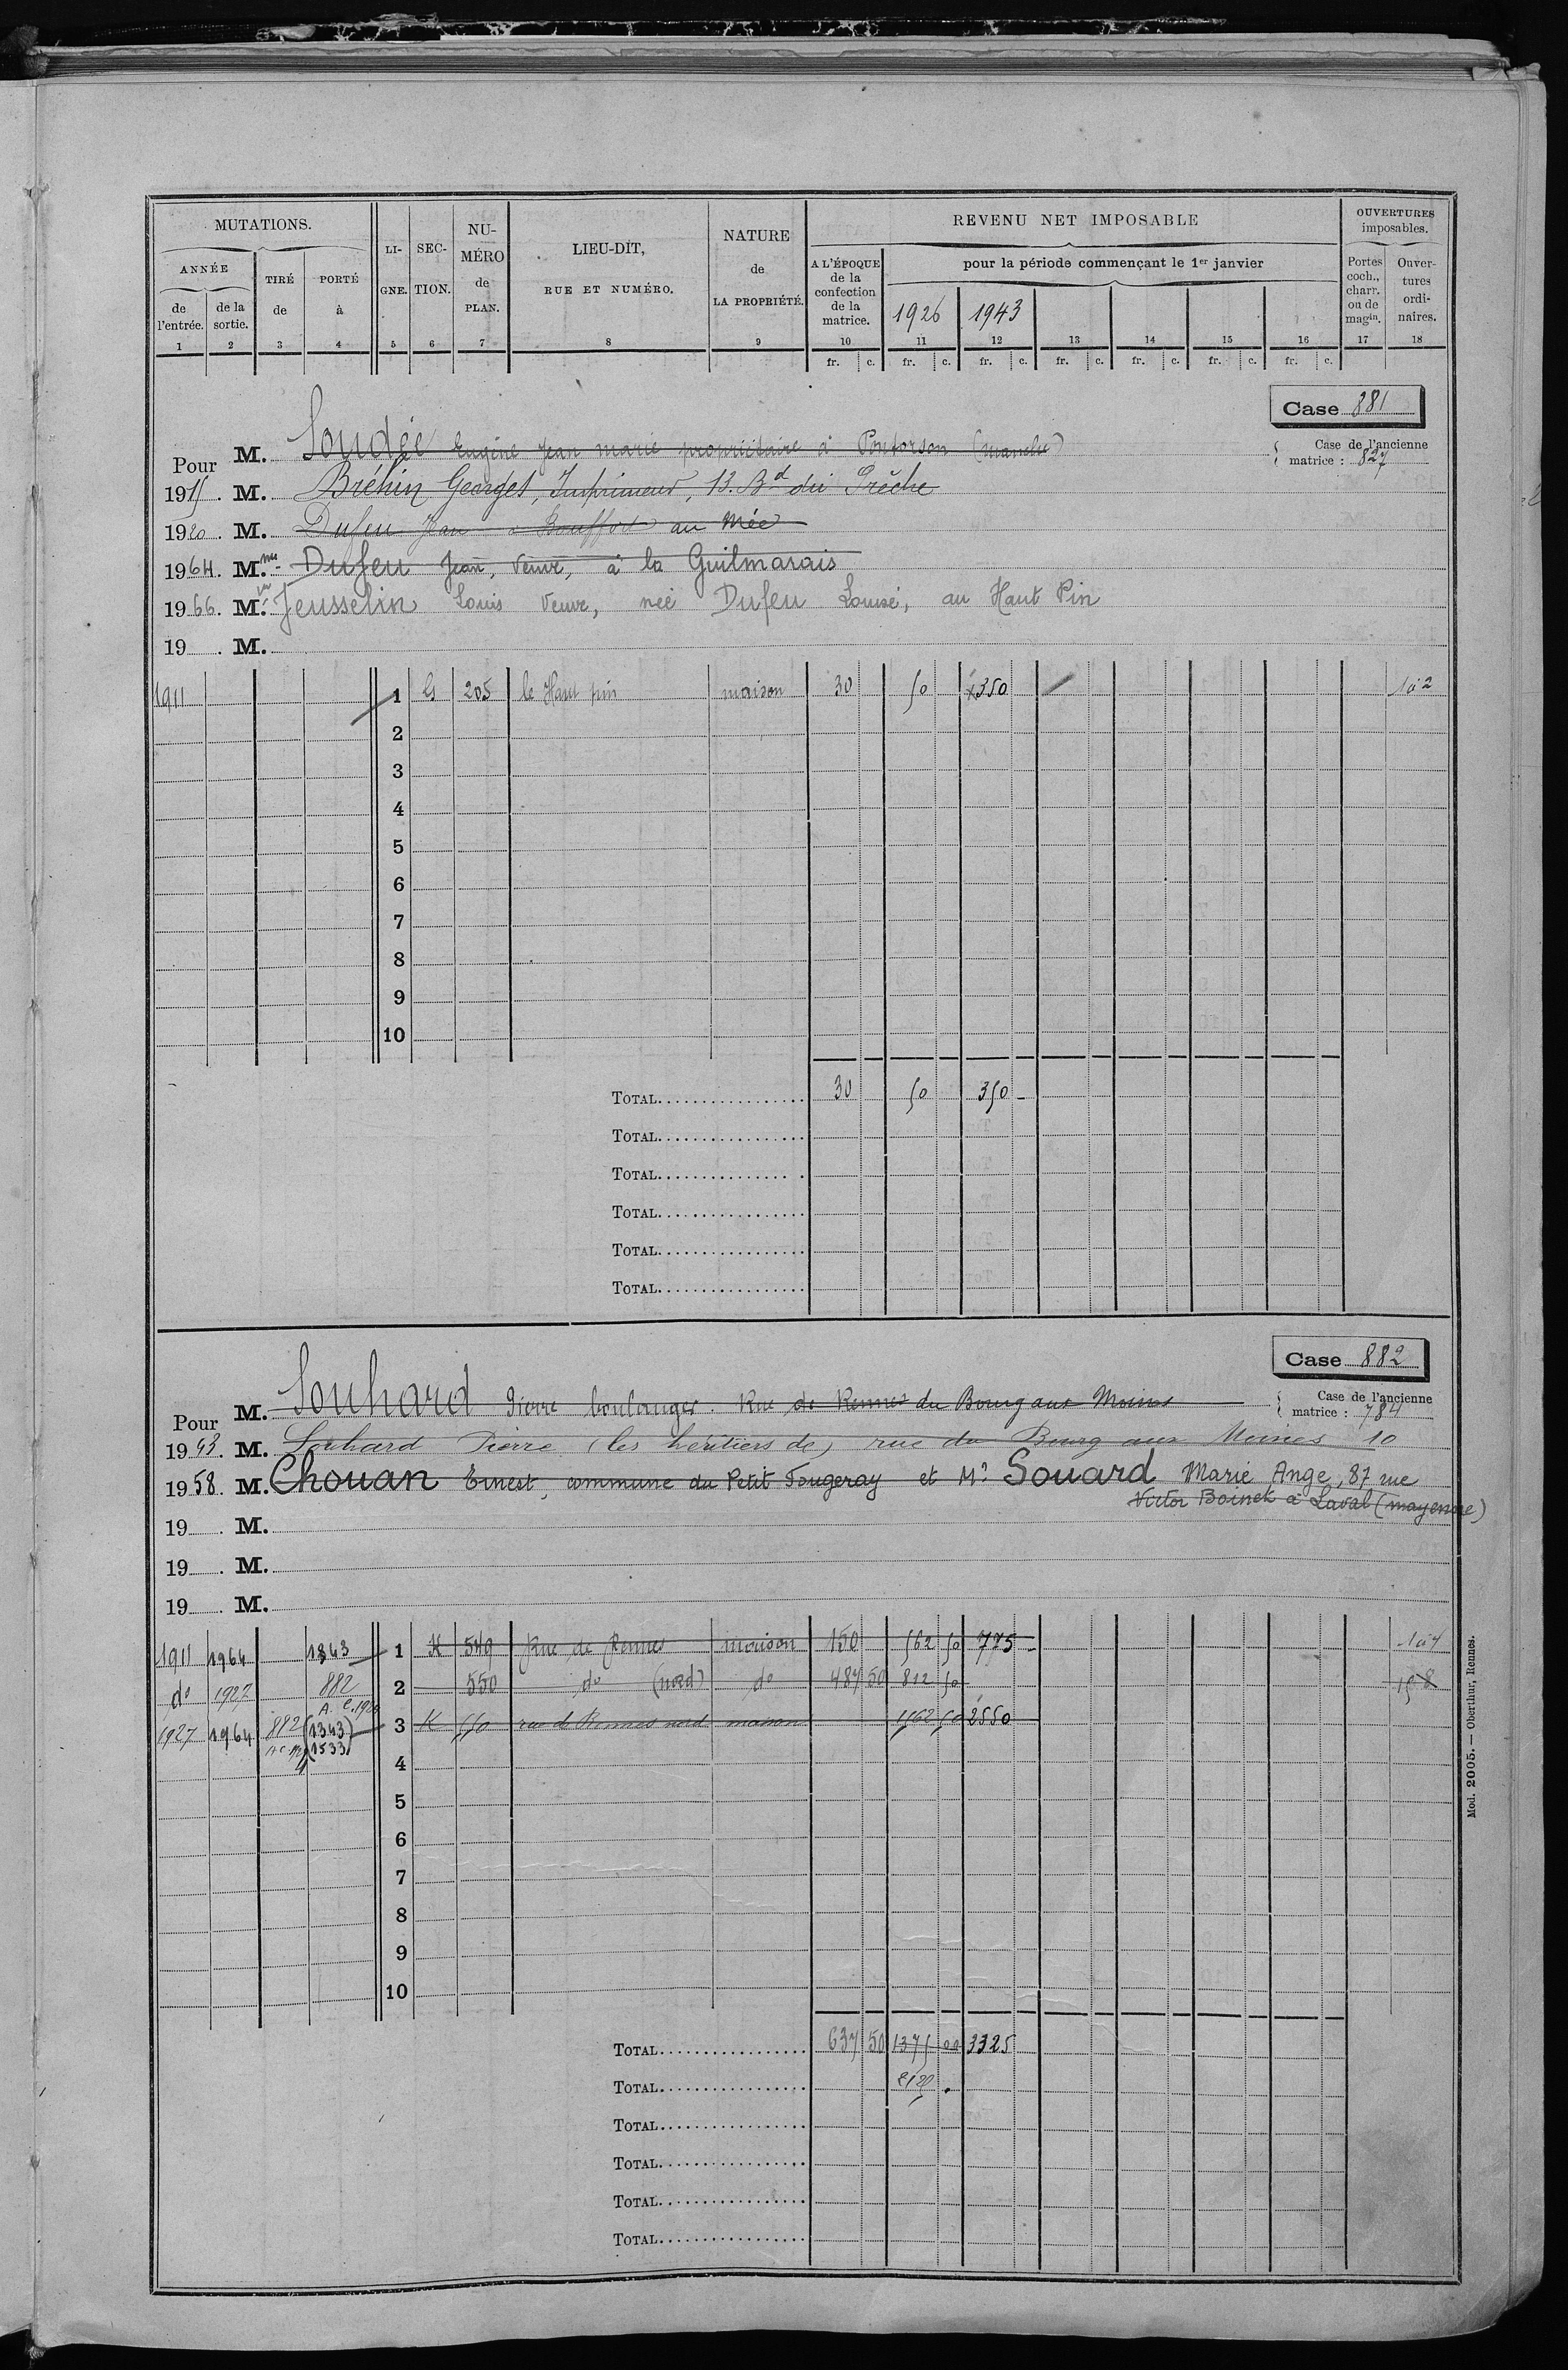 MUTATIONS. LI-GNE. SEC-TION. NU-MÉRO de PLAN. LIEU-DIT, RUE ET NUMÉRO. NATURE de LA PROPRIÉTÉ. REVENU NET IMPOSABLE OUVERTURES imposables.
ANNÉE TIRÉ de PORTÉ à A L'ÉPOQUE de la confection de la matrice. pour la période commençant le 1er janvier Portes coch., charr. ou de magin. Ouver-tures ordi-naires.
de l'entrée. de la sortie. 1926 1943
1 2 3 4 5 6 7 8 9 10 11 12 13 14 15 16 17 18
fr. c. fr. c. fr. c. fr. c. fr. c. fr. c. fr. c.
Case 881
Pour M. Soudée Eugène Jean Marie propriétaire à Pontorson (Manche) Case de l'ancienne matrice : 827
1915. M. Bréhin Georges, Imprimeur, 13. Bd du Prêche
1920. M. Dufeu Jean à Bouffort au Mée
1964. M.me Dufeu Jean, Veuve, à la Guilmarais
1966. M.ve Jeusselin Louis Veuve, née Dufeu Louise, au Haut Pin
19 . M.
1911 1 G 205 le Haut pin maison 30 50 x350 1à2
2
3
4
5
6
7
8
9
10
TOTAL 30 50 350 -
TOTAL
TOTAL
TOTAL
TOTAL
TOTAL
Case 882
Pour M. Souhard Pierre boulanger. Rue de Rennes du Bourg aux Moines Case de l'ancienne matrice : 784
1943. M. Souhard Pierre (les héritiers de) rue du Bourg aux Moines 10
1958. M. Chouan Ernest, commune du Petit Fougeray et Me Souard Marie Ange, 87 rue
Victor Boinet à Laval (mayenne)
19 . M.
19 . M.
19 . M.
1911 1964 1343 1 K 549 Rue de Rennes maison 150 562 50 775 - 1à4
do 1927 882 2 550 do (nord) do 487 50 812 50 15 8
A. C. 1926
1927 1964 882 (1343) 3 K 550 rue de Rennes nord maison 1562 50 2550
(1533)
4
5
6
7
8
9
10
TOTAL 637 50 1375 00 3325
TOTAL .
TOTAL
TOTAL
TOTAL
TOTAL
Mod. 2005. — Oberthur, Rennes.